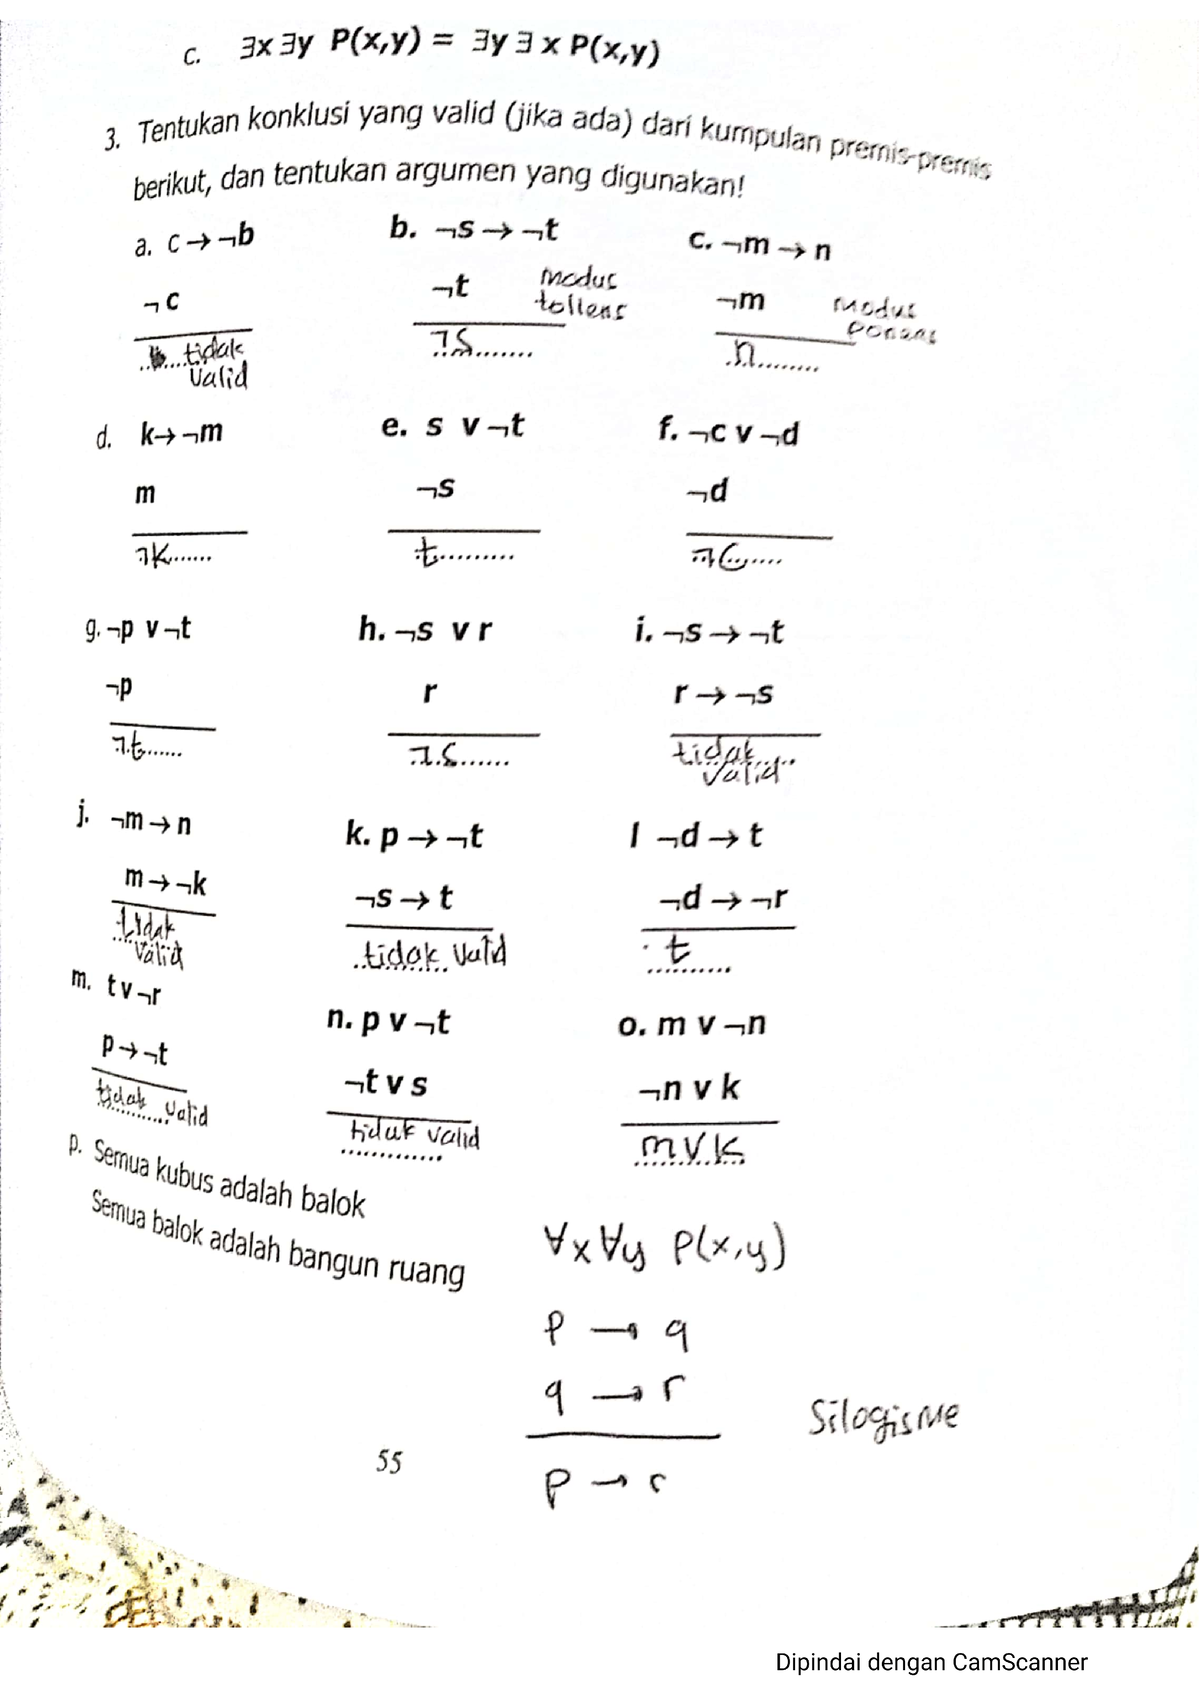 c. ∃x ∃y P(x,y) = ∃y ∃ x P(x,y)
3. Tentukan konklusi yang valid (jika ada) dari kumpulan premis-premis
berikut, dan tentukan argumen yang digunakan!
a. c → ¬b
¬ c
tidak
valid
b. ¬s → ¬t
¬t
modus
tollens
¬s
c. ¬m → n
¬m
modus
ponens
n
d. k → ¬m
m
¬k
e. s v ¬t
¬s
t
f. ¬c v ¬d
¬d
¬c
g. ¬p v ¬t
¬p
¬t
h. ¬s v r
r
¬s
i. ¬s → ¬t
r → ¬s
tidak
valid
j. ¬m → n
m → ¬k
tidak
valid
k. p → ¬t
¬s → t
tidak valid
l ¬d → t
¬d → ¬r
t
m. t v ¬r
p → ¬t
tidak valid
n. p v ¬t
¬t v s
tidak valid
o. m v ¬n
¬n v k
m v k
p. Semua kubus adalah balok
Semua balok adalah bangun ruang
∀x ∀y P(x,y)
p → q
q → r
Silogisme
p → r
55
Dipindai dengan CamScanner